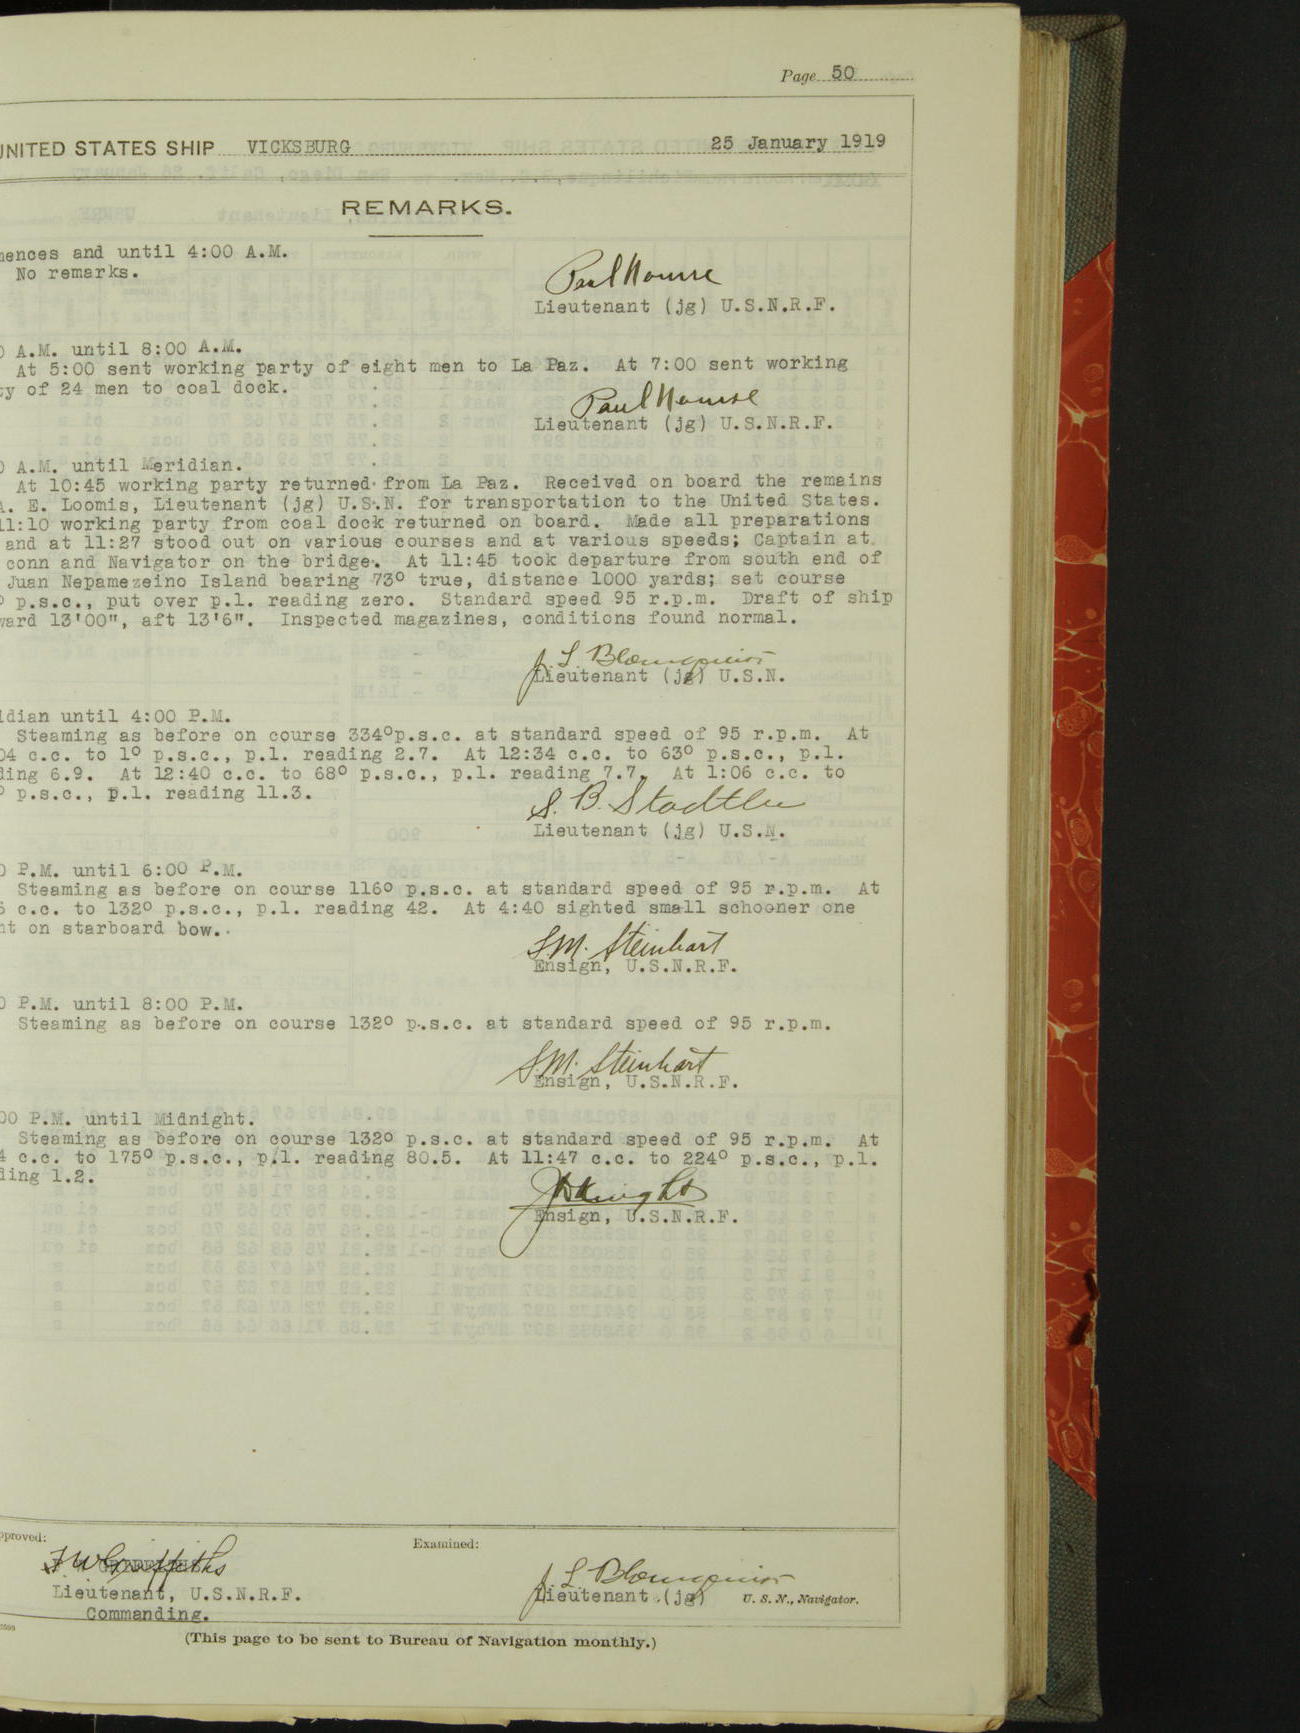 Page 50
UNITED STATES SHIP VICKSBURG 25 January 1919
REMARKS.
mences and until 4:00 A.M.
No remarks.
Paul
Lieutenant (jg) U.S.N.R.F.
0 A.M. until 8:00 A.M.
At 5:00 sent working party of eight men to La Paz. At 7:00 sent working
ty of 24 men to coal dock.
Paul
Lieutenant (jg) U.S.N.R.F.
0 A.M. until Meridian.
At 10:45 working party returned from La Paz. Received on board the remains
A. E. Loomis, Lieutenant (jg) U.S.N. for transportation to the United States.
11:10 working party from coal dock returned on board. Made all preparations
and at 11:27 stood out on various courses and at various speeds; Captain at
conn and Navigator on the bridge. At 11:45 took departure from south end of
Juan Nepamezeino Island bearing 73° true, distance 1000 yards; set course
° p.s.c., put over p.l. reading zero. Standard speed 95 r.p.m. Draft of ship
ward 13'00", aft 13'6". Inspected magazines, conditions found normal.
J. L.
Lieutenant (jg) U.S.N.
idian until 4:00 P.M.
Steaming as before on course 334°p.s.c. at standard speed of 95 r.p.m. At
04 c.c. to 1° p.s.c., p.l. reading 2.7. At 12:34 c.c. to 63° p.s.c., p.l.
ding 6.9. At 12:40 c.c. to 68° p.s.c., p.l. reading 7.7. At 1:06 c.c. to
° p.s.c., p.l. reading 11.3.
S. B. Stadtler
Lieutenant (jg) U.S.N.
0 P.M. until 6:00 P.M.
Steaming as before on course 116° p.s.c. at standard speed of 95 r.p.m. At
5 c.c. to 132° p.s.c., p.l. reading 42. At 4:40 sighted small schooner one
nt on starboard bow.
S.M. Steinhart
Ensign, U.S.N.R.F.
0 P.M. until 8:00 P.M.
Steaming as before on course 132° p.s.c. at standard speed of 95 r.p.m.
S.M. Steinhart
Ensign, U.S.N.R.F.
00 P.M. until Midnight.
Steaming as before on course 132° p.s.c. at standard speed of 95 r.p.m. At
4 c.c. to 175° p.s.c., p.l. reading 80.5. At 11:47 c.c. to 224° p.s.c., p.l.
ding 1.2.
Ensign, U.S.N.R.F.
pproved:
Examined:
F W Griffiths
J. L.
Lieutenant, U.S.N.R.F.
Lieutenant (jg) U. S. N., Navigator.
Commanding.
(This page to be sent to Bureau of Navigation monthly.)